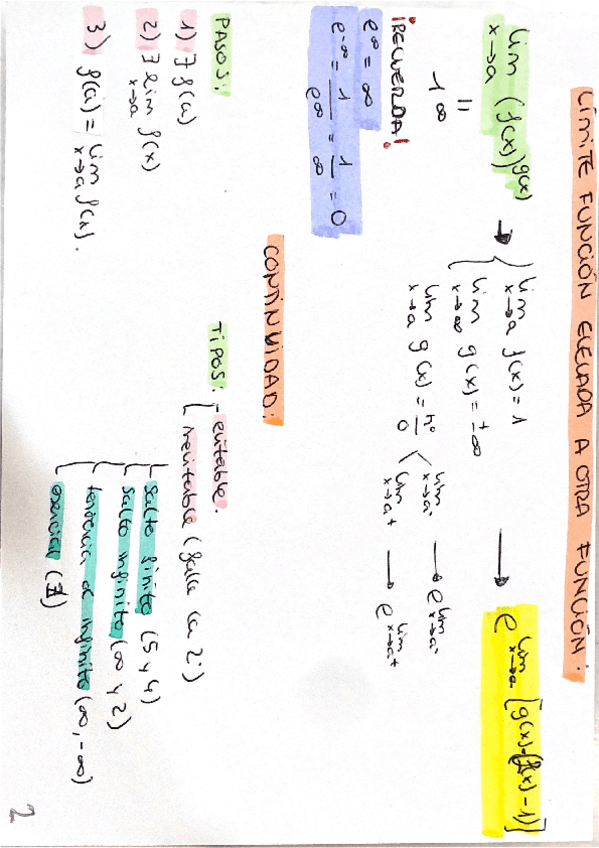 LÍMITE FUNCIÓN ELEVADA A OTRA FUNCIÓN:
lim x→a (f(x))^g(x) → { lim x→a f(x) = 1 → e^lim x→a [g(x)·(f(x) - 1)]
lim x→∞ g(x) = ±∞
=
1^∞
lim x→a g(x) = nº/0 < lim x→a⁻ → e^lim x→a⁻
lim x→a⁺ → e^lim x→a⁺
¡RECUERDA!
e^∞ = ∞
e^-∞ = 1/e^∞ = 1/∞ = 0
CONTINUIDAD:
PASOS:
1) ∃ f(a)
2) ∃ lim x→a f(x)
3) f(a) = lim x→a f(x).
TIPOS:
- evitable.
inevitable (falla la 2)
salto finito (5 y 4)
salto infinito (∞ y 2)
tendencia al infinito (∞, -∞)
esencial (∄)
2